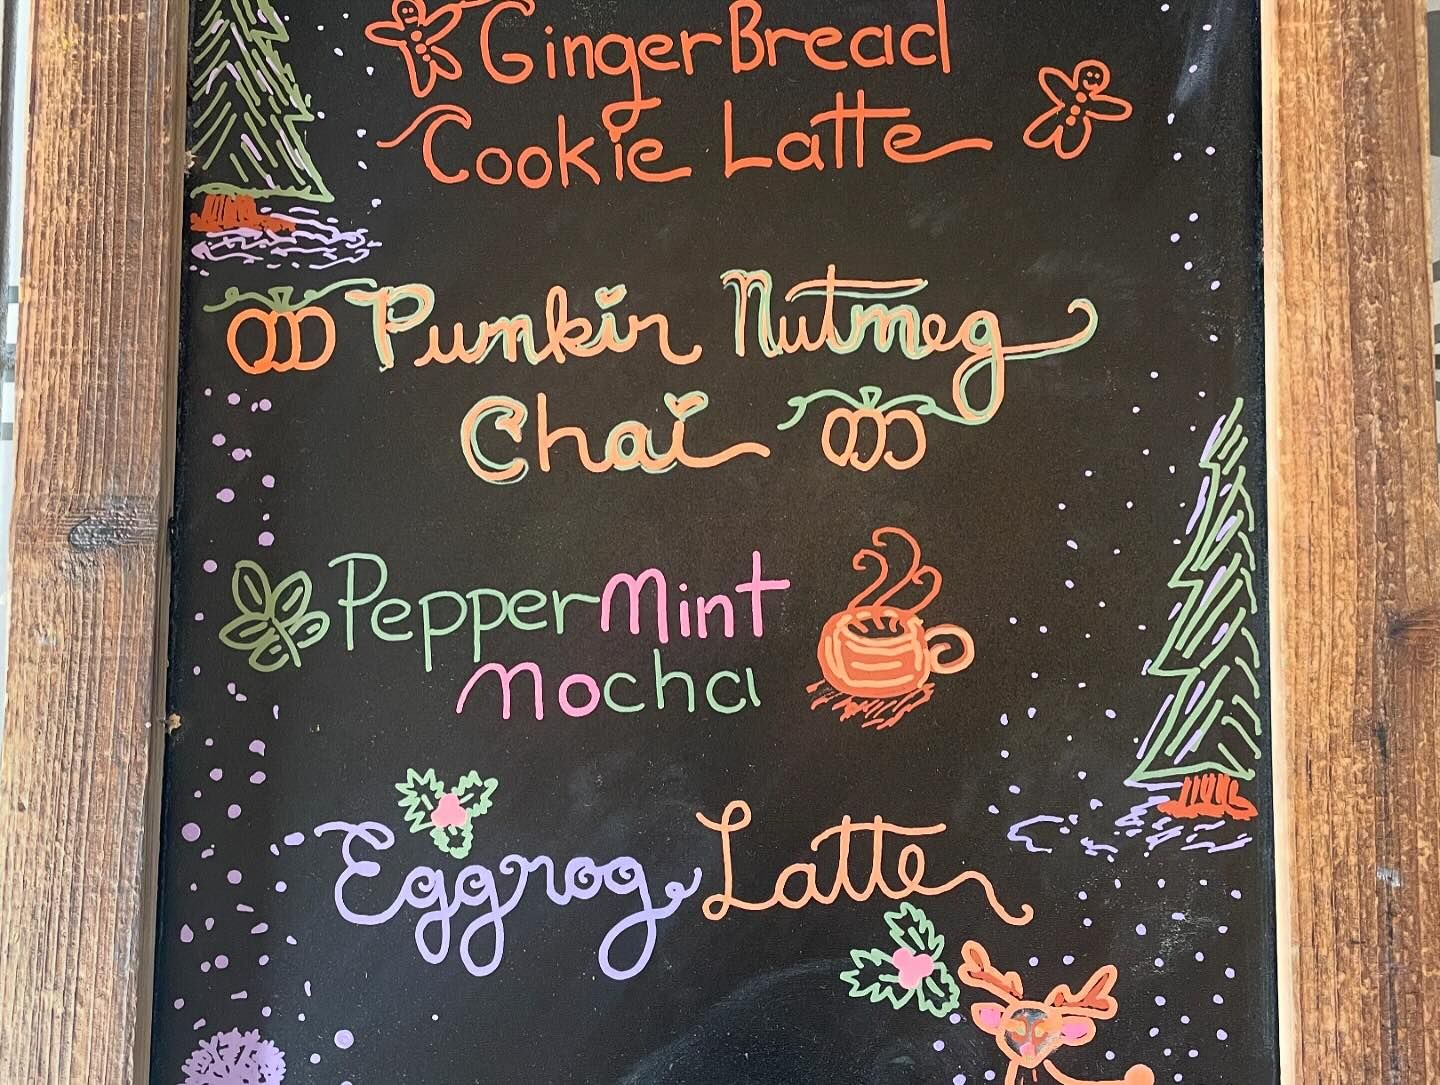 GingerBread
Cookie Latte
Punkin Nutmeg
Chai
PepperMint
Mocha
Eggnog Latte